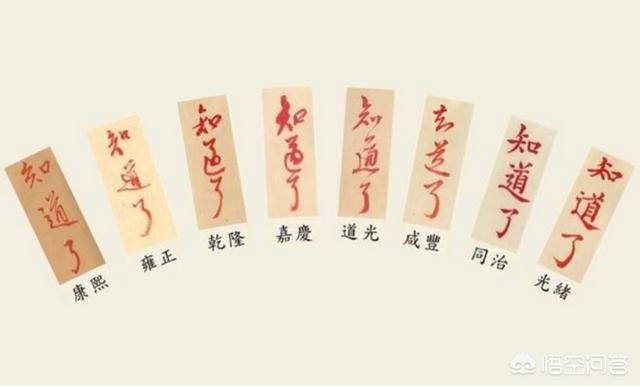 知道了
康熙
知道了
雍正
知道了
乾隆
知道了
嘉慶
知道了
道光
知道了
咸豐
知道了
同治
知道了
光緒
悟空问答